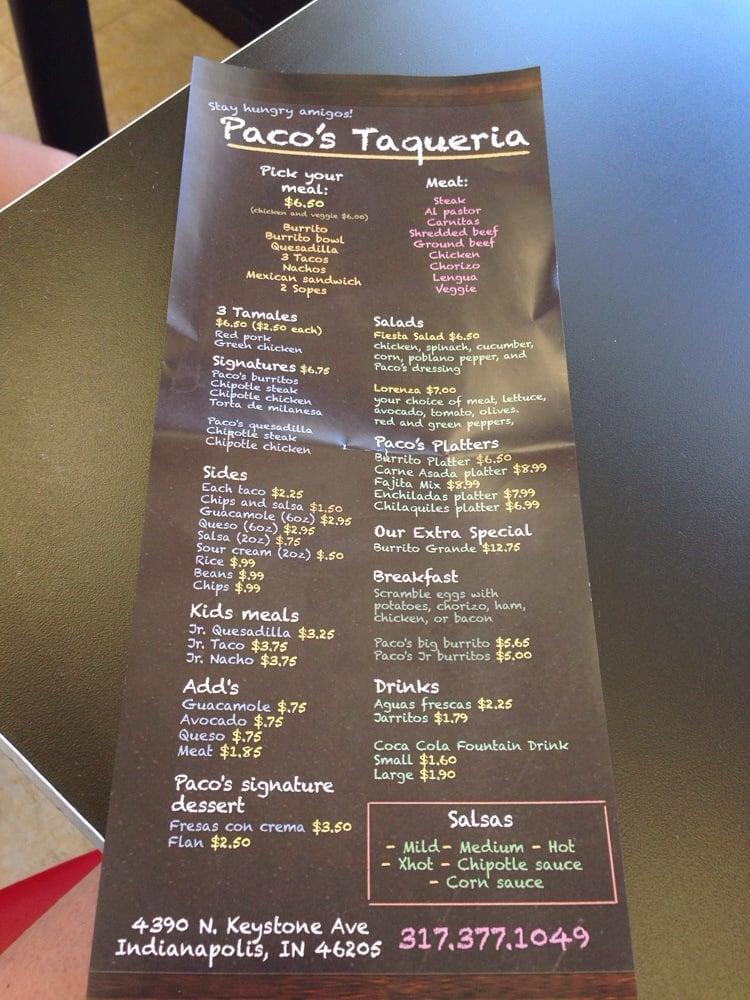 Stay hungry amigos!
Paco's Taqueria
Pick your
meal:
$6.50
(chicken and veggie $6.00)
Burrito
Burrito bowl
Quesadilla
3 Tacos
Nachos
Mexican sandwich
2 Sopes
Meat:
Steak
Al pastor
Carnitas
Shredded beef
Ground beef
Chicken
Chorizo
Lengua
Veggie
3 Tamales
$6.50 ($2.50 each)
Red pork
Green chicken
Signatures $6.75
Paco's burritos
Chipotle steak
Chipotle chicken
Torta de milanesa
Paco's quesadilla
Chipotle steak
Chipotle chicken
Sides
Each taco $2.25
Chips and salsa $1.50
Guacamole (6oz) $2.95
Queso (6oz) $2.95
Salsa (2oz) $.75
Sour cream (2oz) $.50
Rice $.99
Beans $.99
Chips $.99
Kids meals
Jr. Quesadilla $3.25
Jr. Taco $3.75
Jr. Nacho $3.75
Add's
Guacamole $.75
Avocado $.75
Queso $.75
Meat $1.85
Paco's signature
dessert
Fresas con crema $3.50
Flan $2.50
Salads
Fiesta Salad $6.50
chicken, spinach, cucumber,
corn, poblano pepper, and
Paco's dressing
Lorenza $7.00
your choice of meat, lettuce,
avocado, tomato, olives.
red and green peppers,
Paco's Platters
Burrito Platter $6.50
Carne Asada platter $8.99
Fajita Mix $8.99
Enchiladas platter $7.99
Chilaquiles platter $6.99
Our Extra Special
Burrito Grande $12.75
Breakfast
Scramble eggs with
potatoes, chorizo, ham,
chicken, or bacon
Paco's big burrito $5.65
Paco's Jr burritos $5.00
Drinks
Aguas frescas $2.25
Jarritos $1.79
Coca Cola Fountain Drink
Small $1.60
Large $1.90
Salsas
- Mild - Medium - Hot
- Xhot - Chipotle sauce
- Corn sauce
4390 N. Keystone Ave
Indianapolis, IN 46205
317.377.1049